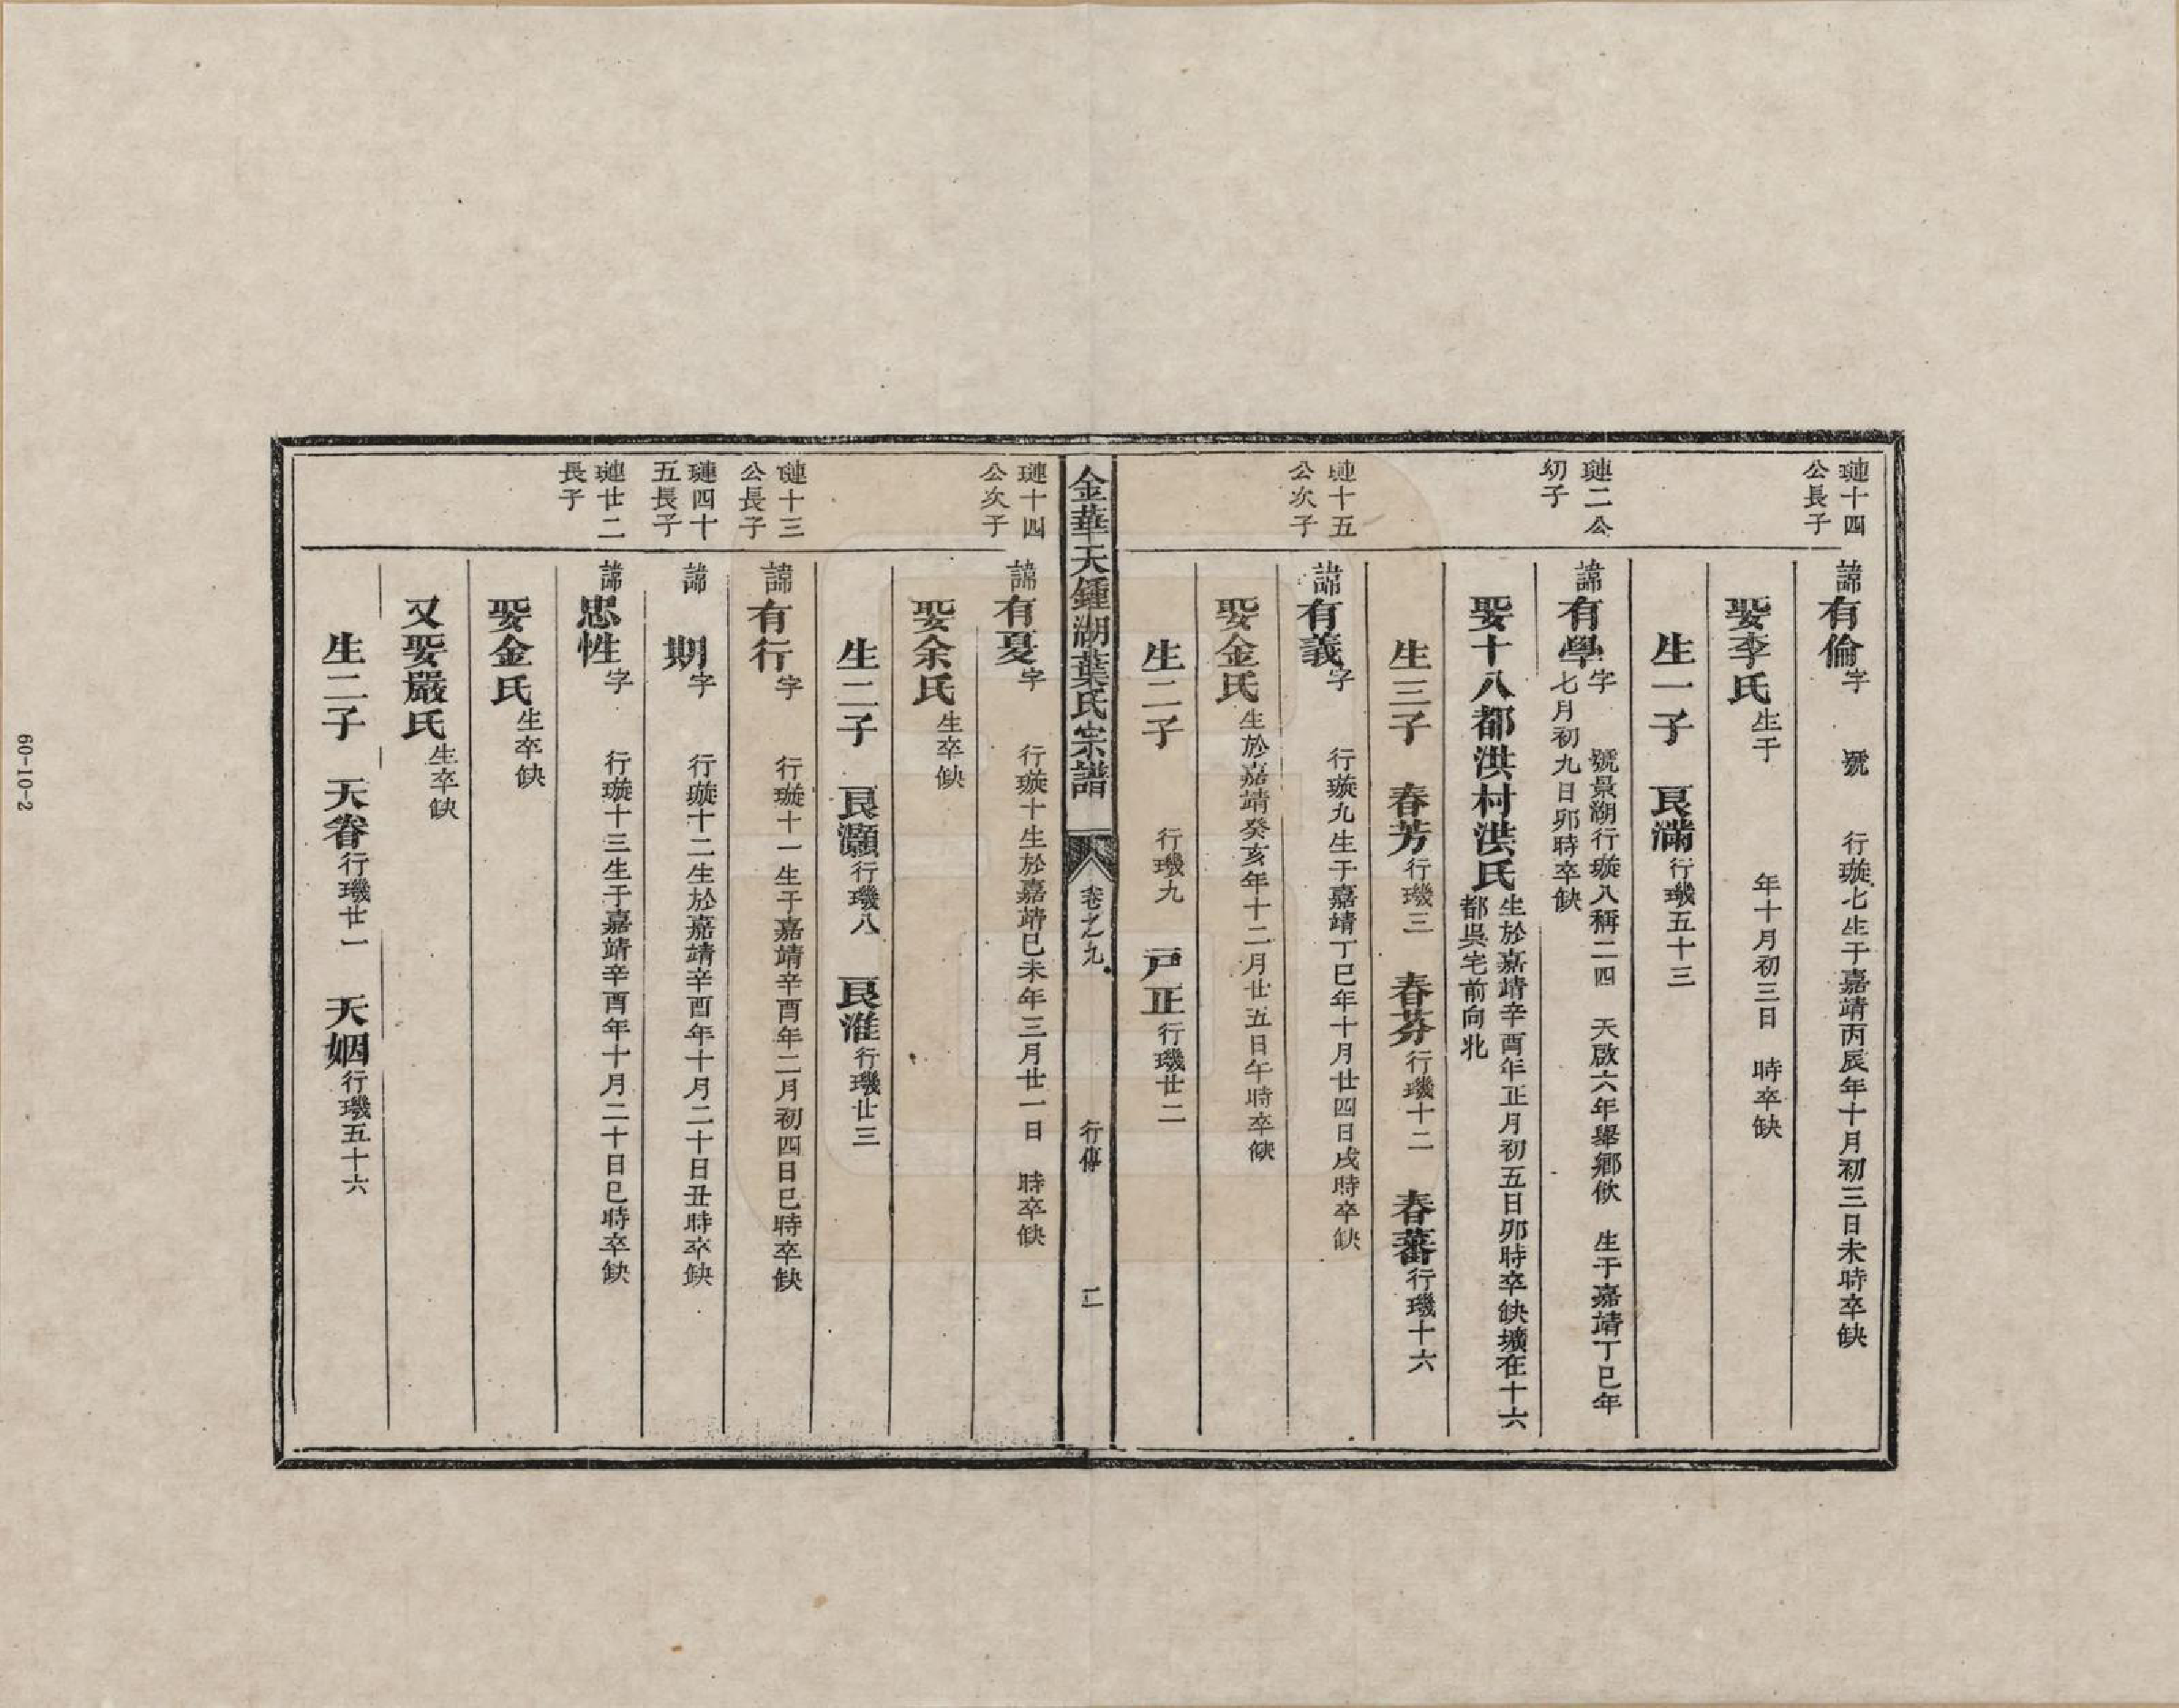 璉十四
公長子
諱有倫字 號 行璇七生于嘉靖丙辰年十月初三日未時卒缺
娶李氏生于 年十月初三日 時卒缺
生一子 良滿行璣五十三
璉二公
幼子
諱有學字 號景湖行璇八稱二四 天啟六年舉鄉飲 生于嘉靖丁巳年
七月初九日卯時卒缺
娶十八都洪村洪氏生於嘉靖辛酉年正月初五日卯時卒缺壙在十六
都吳宅前向北
生三子 春芳行璣三 春芬行璣十二 春蕃行璣十六
璉十五
公次子
諱有義字 行璇九生于嘉靖丁巳年十月廿四日戌時卒缺
娶金氏生於嘉靖癸亥年十二月廿五日午時卒缺
生二子 行璣九 戸正行璣廿二
金華天鍾湖葉氏宗譜 卷之九 行傳 二
璉十四
公次子
諱有夏字 行璇十生於嘉靖己未年三月廿一日 時卒缺
娶余氏生卒缺
生二子 良灝行璣八 良淮行璣廿三
璉十三
公長子
諱有行字 行璇十一生于嘉靖辛酉年二月初四日巳時卒缺
璉四十
五長子
諱 期字 行璇十二生於嘉靖辛酉年十月二十日丑時卒缺
璉廿二
長子
諱忠性字 行璇十三生于嘉靖辛酉年十月二十日巳時卒缺
娶金氏生卒缺
又娶嚴氏生卒缺
生二子 天眷行璣廿一 天姻行璣五十六
60-10-2